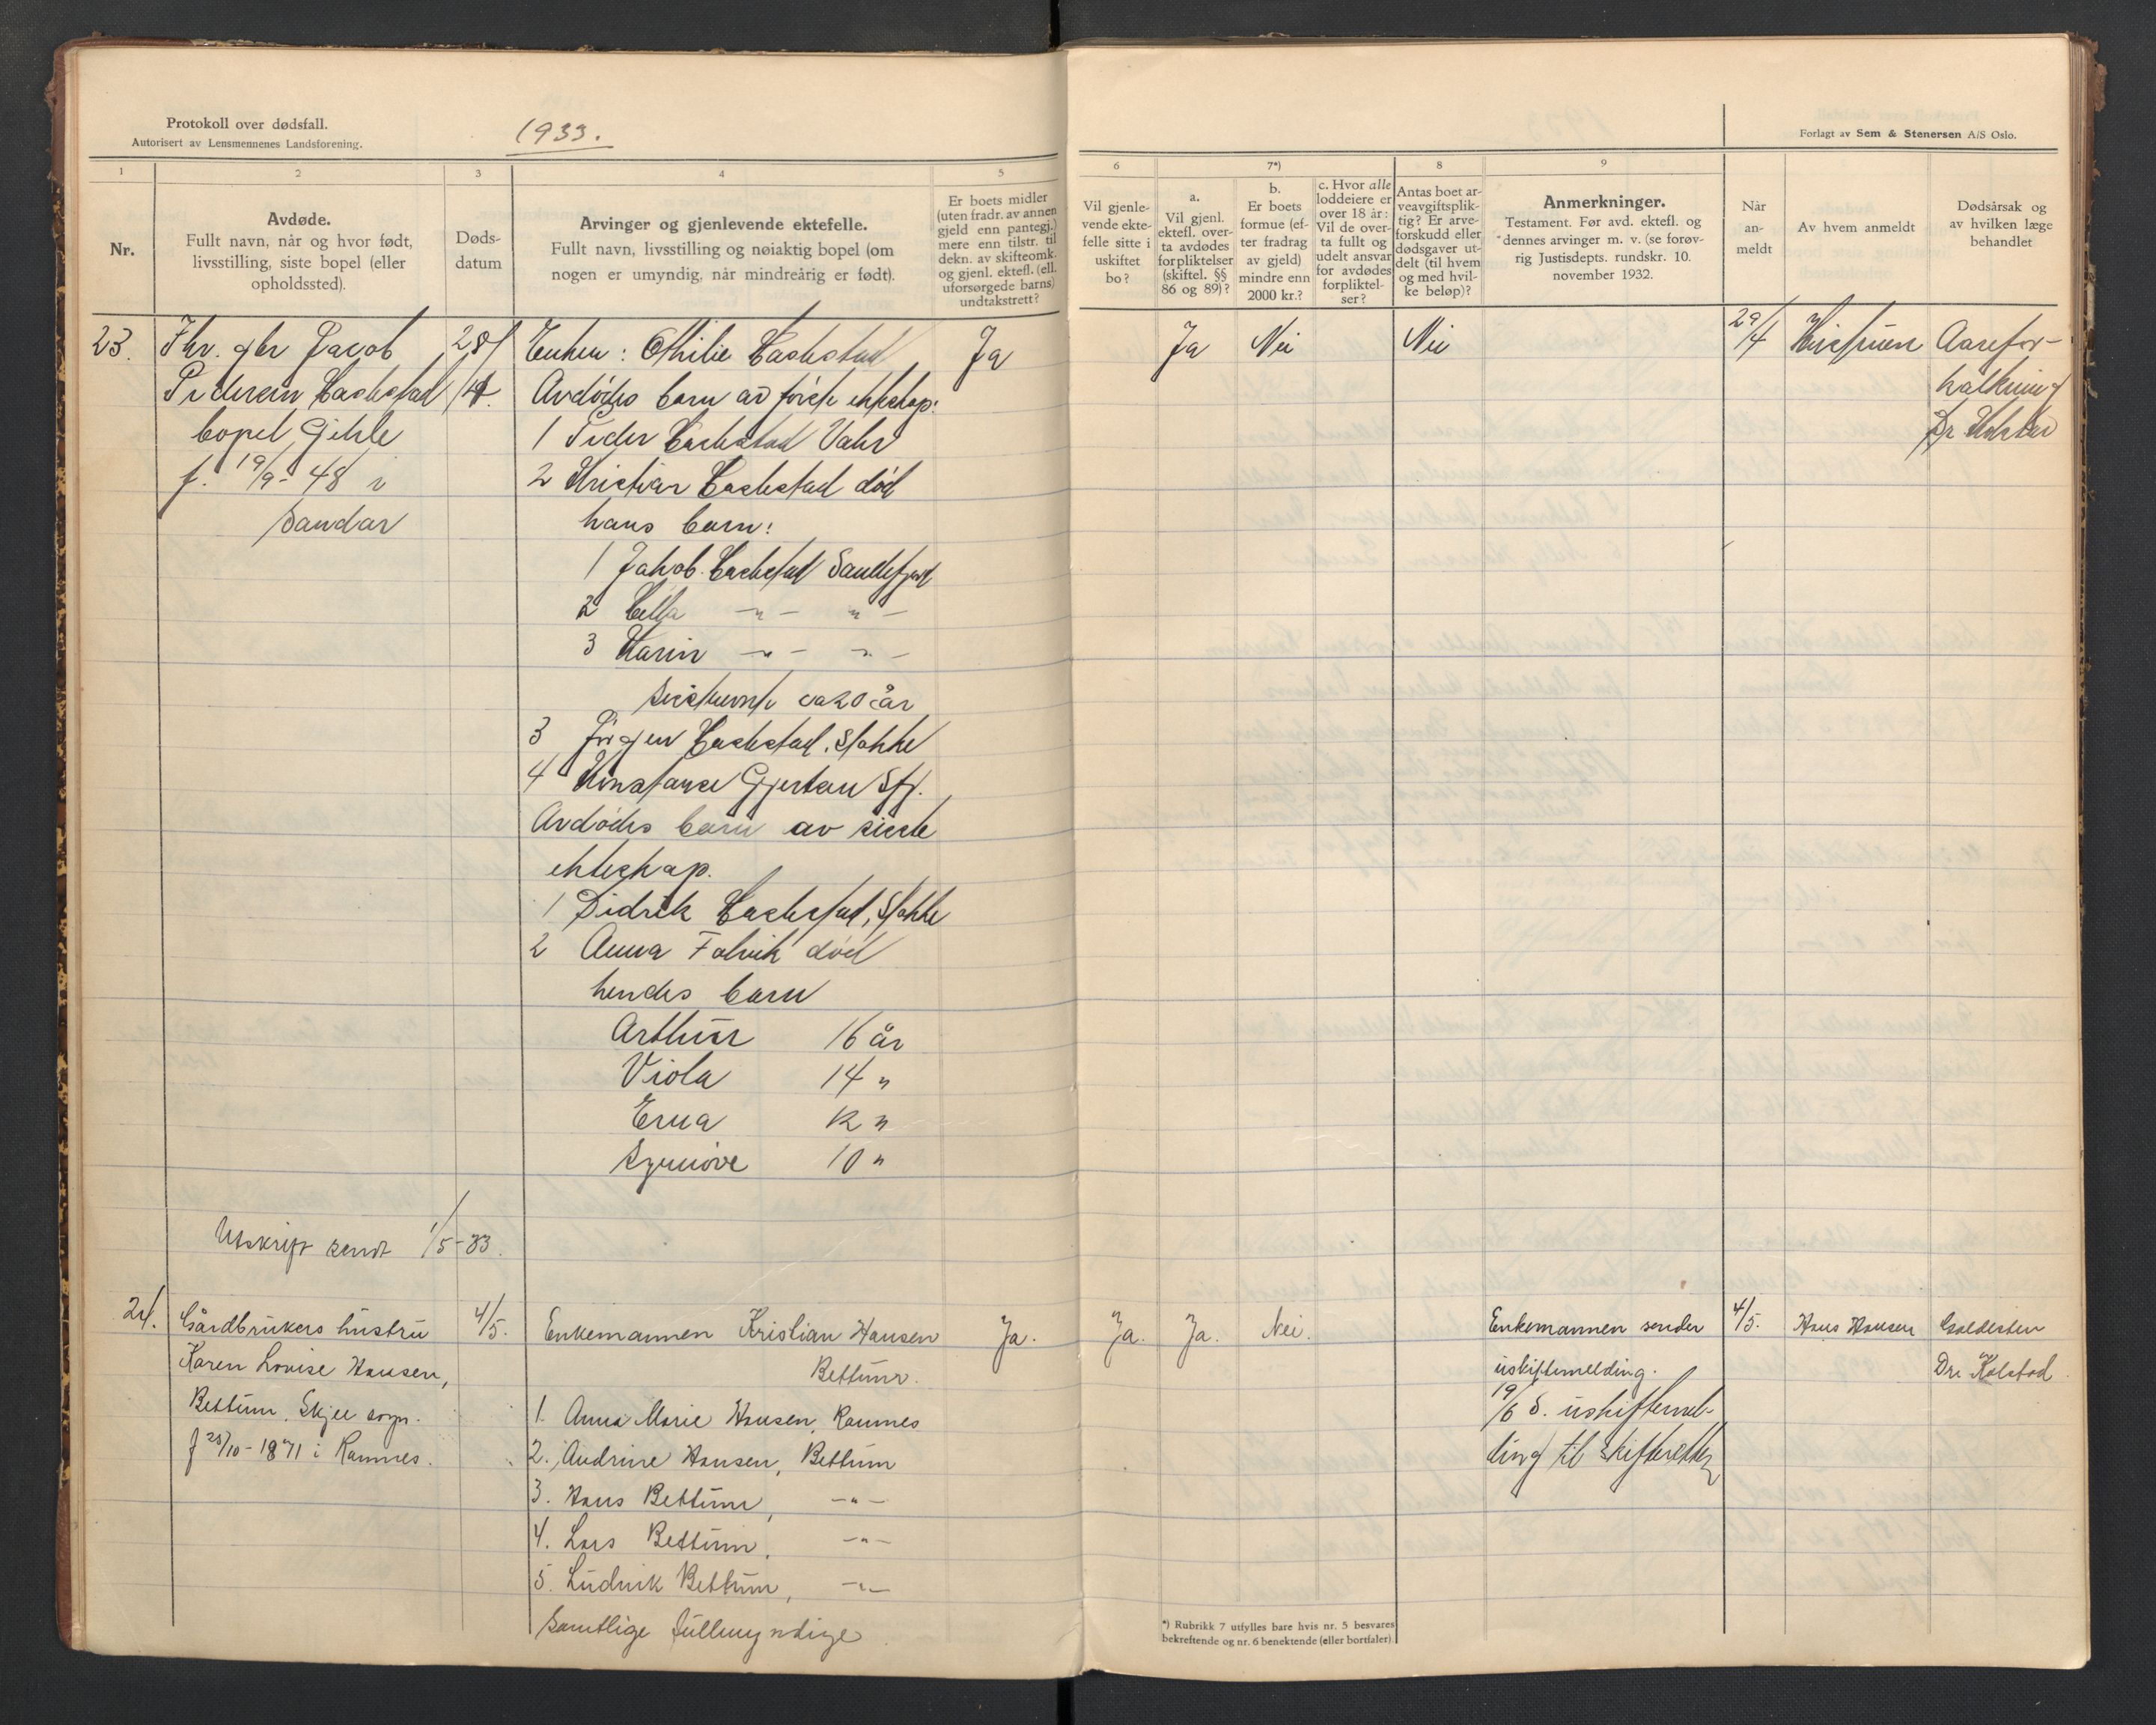 Protokoll over dødsfall.
Autorisert av Lensmennenes Landsforening.
1933.
1
2
3
4
5
Nr.
Avdøde.
Fullt navn, når og hvor født,
livsstilling, siste bopel (eller
opholdssted).
Døds-
datum
Arvinger og gjenlevende ektefelle.
Fullt navn, livsstilling og nøiaktig bopel (om
nogen er umyndig, når mindreårig er født).
Er boets midler
(uten fradr. av annen
gjeld enn pantegj.)
mere enn tilstr. til
dekn. av skifteomk.
og gjenl. ektefl. (ell.
uforsørgede barns)
undtakstrett?
23.
Fhv. gbr Jacob
Pedersen
bopel Gjekle
f. 19/9- 48 i
Sandar
28/
4.
Enken: Othilie
Avdødes barn av første ekteskap:
1 Peder
2 Kristian død
hans barn:
1 Jakob Sandefjord
2 -"- -"-
3 Karin -"- -"-
sistnevnte ca 20 år
3 Jørgen Stokke
4 Konstance Gjertsen Sfj.
Avdødes barn av siste
ekteskap.
1 Didrik Stokke
2 Anna Falvik død
hendes barn
Arthur 16 år
Viola 14 "
Erna 12 "
Synnøve 10 "
Ja
Utskrift sendt 1/5-33.
24.
Gårdbrukers hustru
Karen Lovise Hansen,
Bettum, Skjee sogn.
f 28/10-1871 i Ramnes.
4/5.
Enkemannen Kristian Hansen
Bettum.
1. Anna Marie Hansen, Ramnes
2. Andrine Hansen, Bettum
3. Hans Bettum, -"-
4. Lars Bettum, -"-
5. Ludvik Bettum, -"-
Samtlige fullmyndige.
Ja.
Forlagt av Sem & Stenersen A/S Oslo.
6
7*)
8
9
Vil gjenle-
vende ekte-
felle sitte i
uskiftet
bo?
a.
Vil gjenl.
ektefl. over-
ta avdødes
forpliktelser
(skiftel. §§
86 og 89)?
b.
Er boets
formue (ef-
ter fradrag
av gjeld)
mindre enn
2000 kr.?
c. Hvor alle
loddeiere er
over 18 år:
Vil de over-
ta fullt og
udelt ansvar
for avdødes
forpliktel-
ser?
Antas boet ar-
veavgiftsplik-
tig? Er arve-
forskudd eller
dødsgaver ut-
delt (til hvem
og med hvil-
ke beløp)?
Anmerkninger.
Testament. Før avd. ektefl. og
dennes arvinger m. v. (se forøv-
rig Justisdepts. rundskr. 10.
november 1932.
Når
an-
meldt
Av hvem anmeldt
Dødsårsak og
av hvilken læge
behandlet
Ja Nei Nei
29/
4
Hustruen
Aarefor-
kalkning
Dr Holstad
Ja. Ja. Nei.
Enkemannen sender
uskiftemelding.
19/6 S. uskiftemel-
ding til skifteretten
4/5.
Hans Hansen
Galdesten
Dr. Kolstad
*) Rubrikk 7 utfylles bare hvis nr. 5 besvares
bekreftende og nr. 6 benektende (eller bortfaler).